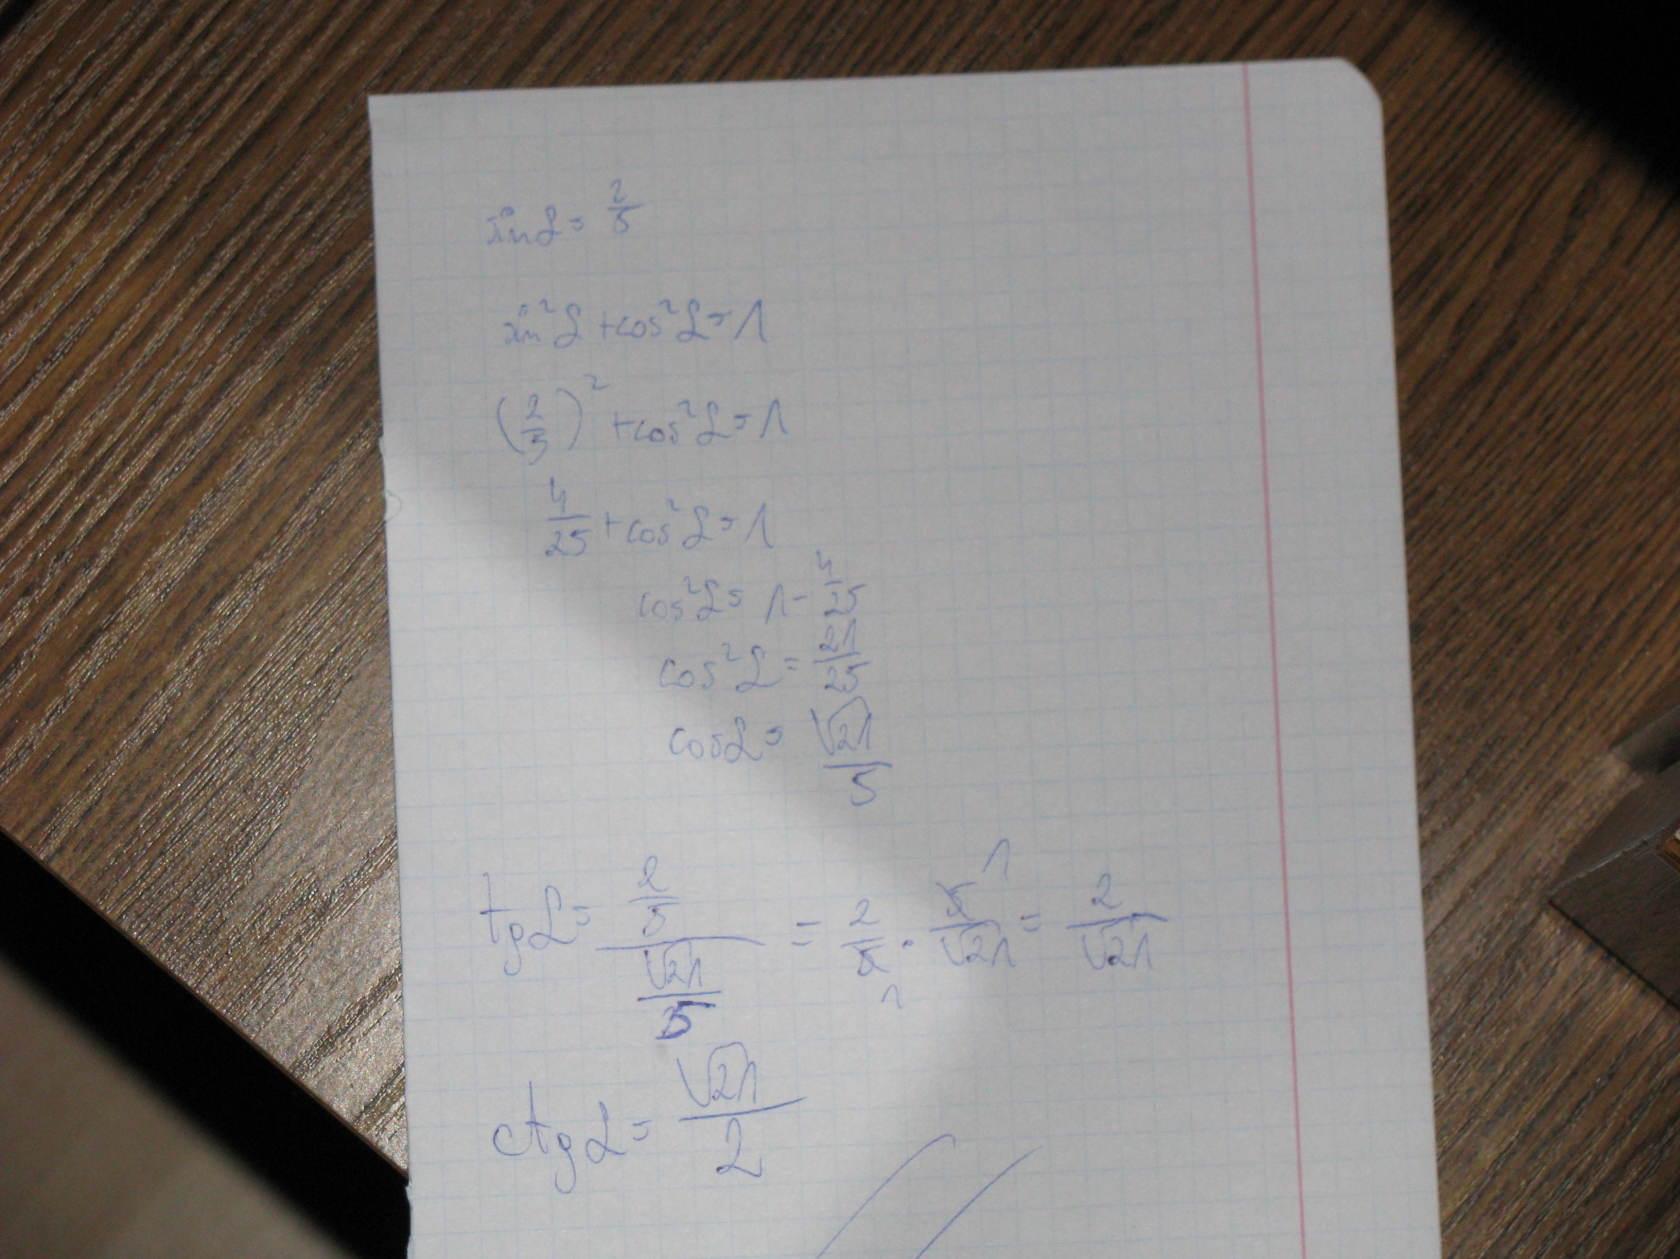 sin α = 2/5
sin² α + cos² α = 1
(2/5)² + cos² α = 1
4/25 + cos² α = 1
cos² α = 1 - 4/25
cos² α = 21/25
cos α = √21/5
tg α = (2/5)/(√21/5) = 2/5 1 · 5/√21 1 = 2/√21
ctg α = √21/2